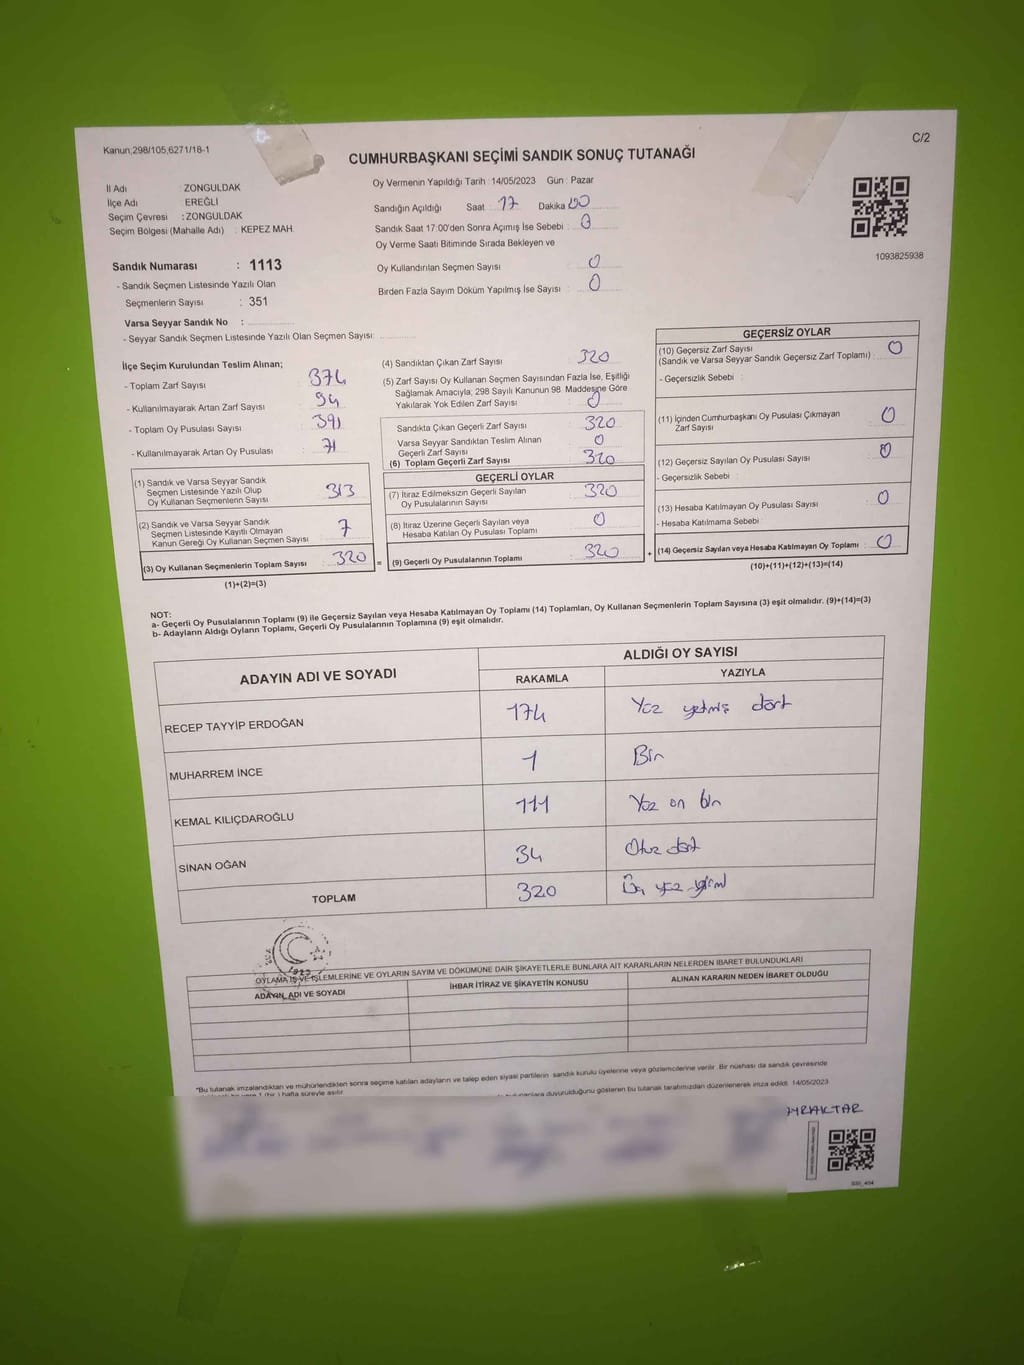 Kanun;298/105,6271/18-1
C/2
CUMHURBAŞKANI SEÇİMİ SANDIK SONUÇ TUTANAĞI
İl Adı : ZONGULDAK
İlçe Adı : EREĞLİ
Seçim Çevresi : ZONGULDAK
Seçim Bölgesi (Mahalle Adı) : KEPEZ MAH.
Oy Vermenin Yapıldığı Tarih : 14/05/2023 Gün : Pazar
Sandığın Açıldığı Saat : 17 Dakika
Sandık Saat 17:00'den Sonra Açımış İse Sebebi : 0
Oy Verme Saati Bitiminde Sırada Bekleyen ve
Oy Kullandırılan Seçmen Sayısı : 0
Birden Fazla Sayım Döküm Yapılmış İse Sayısı : 0
1093825938
Sandık Numarası : 1113
- Sandık Seçmen Listesinde Yazılı Olan
Seçmenlerin Sayısı : 351
Varsa Seyyar Sandık No :
- Seyyar Sandık Seçmen Listesinde Yazılı Olan Seçmen Sayısı:
İlçe Seçim Kurulundan Teslim Alınan;
- Toplam Zarf Sayısı : 374
- Kullanılmayarak Artan Zarf Sayısı : 54
- Toplam Oy Pusulası Sayısı : 391
- Kullanılmayarak Artan Oy Pusulası : 71
(1) Sandık ve Varsa Seyyar Sandık
Seçmen Listesinde Yazılı Olup
Oy Kullanan Seçmenlerin Sayısı : 313
(2) Sandık ve Varsa Seyyar Sandık
Seçmen Listesinde Kayıtlı Olmayan
Kanun Gereği Oy Kullanan Seçmen Sayısı : 7
(3) Oy Kullanan Seçmenlerin Toplam Sayısı : 320
(1)+(2)=(3)
(4) Sandıktan Çıkan Zarf Sayısı : 320
(5) Zarf Sayısı Oy Kullanan Seçmen Sayısından Fazla İse, Eşitliği
Sağlamak Amacıyla; 298 Sayılı Kanunun 98. Maddesine Göre
Yakılarak Yok Edilen Zarf Sayısı : 0
Sandıkta Çıkan Geçerli Zarf Sayısı : 320
Varsa Seyyar Sandıktan Teslim Alınan
Geçerli Zarf Sayısı : 0
(6) Toplam Geçerli Zarf Sayısı : 320
GEÇERLİ OYLAR
(7) İtiraz Edilmeksizin Geçerli Sayılan
Oy Pusulalarının Sayısı : 320
(8) İtiraz Üzerine Geçerli Sayılan veya
Hesaba Katılan Oy Pusulası Toplamı : 0
= (9) Geçerli Oy Pusulalarının Toplamı : 320
GEÇERSİZ OYLAR
(10) Geçersiz Zarf Sayısı
(Sandık ve Varsa Seyyar Sandık Geçersiz Zarf Toplamı) : 0
- Geçersizlik Sebebi :
(11) İçinden Cumhurbaşkanı Oy Pusulası Çıkmayan
Zarf Sayısı : 0
(12) Geçersiz Sayılan Oy Pusulası Sayısı : 0
- Geçersizlik Sebebi :
(13) Hesaba Katılmayan Oy Pusulası Sayısı : 0
- Hesaba Katılmama Sebebi :
+ (14) Geçersiz Sayılan veya Hesaba Katılmayan Oy Toplamı : 0
(10)+(11)+(12)+(13)=(14)
NOT:
a- Geçerli Oy Pusulalarının Toplamı (9) ile Geçersiz Sayılan veya Hesaba Katılmayan Oy Toplamı (14) Toplamları, Oy Kullanan Seçmenlerin Toplam Sayısına (3) eşit olmalıdır. (9)+(14)=(3)
b- Adayların Aldığı Oyların Toplamı, Geçerli Oy Pusulalarının Toplamına (9) eşit olmalıdır.
ADAYIN ADI VE SOYADI
ALDIĞI OY SAYISI
RAKAMLA YAZIYLA
RECEP TAYYİP ERDOĞAN 174 Yüz yetmiş dört
MUHARREM İNCE 1 Bir
KEMAL KILIÇDAROĞLU 111 Yüz on bir
SİNAN OĞAN 34 Otuz dört
TOPLAM 320 Üç yüz yirmi
OYLAMA İŞ VE İŞLEMLERİNE VE OYLARIN SAYIM VE DÖKÜMÜNE DAİR ŞİKAYETLERLE BUNLARA AİT KARARLARIN NELERDEN İBARET BULUNDUKLARI
ADAYIN ADI VE SOYADI İHBAR İTİRAZ VE ŞİKAYETİN KONUSU ALINAN KARARIN NEDEN İBARET OLDUĞU
*Bu tutanak imzalandıktan ve mühürlendikten sonra seçime katılan adayların ve talep eden siyasi partilerin sandık kurulu üyelerine veya gözlemcilerine verilir. Bir nüshası da sandık çevresinde
1 (bir) hafta süreyle asılır. duyurulduğunu gösteren bu tutanak tarafımızdan düzenlenerek imza edildi. 14/05/2023